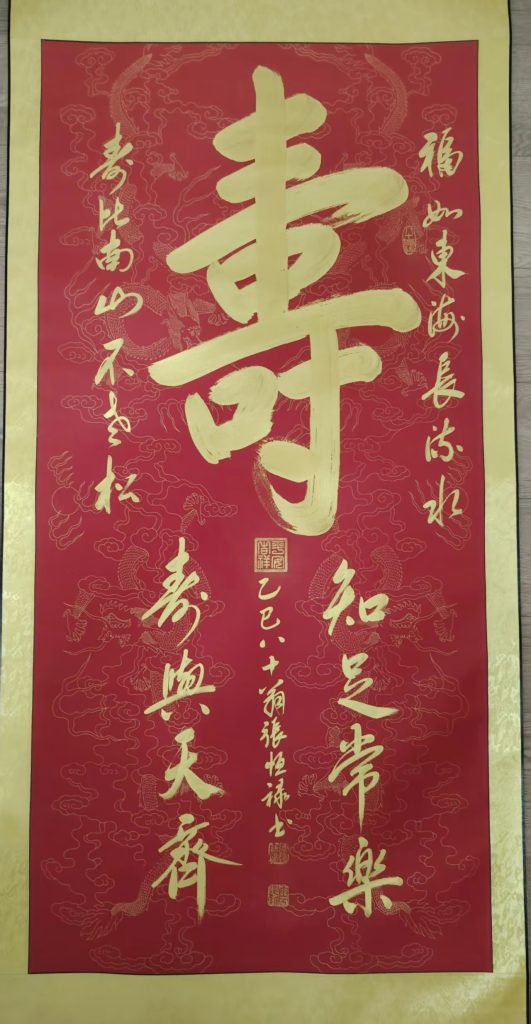 壽
福如東海長流水
壽比南山不老松
知足常樂
壽與天齊
平安吉祥
乙巳八十翁張恒祿書